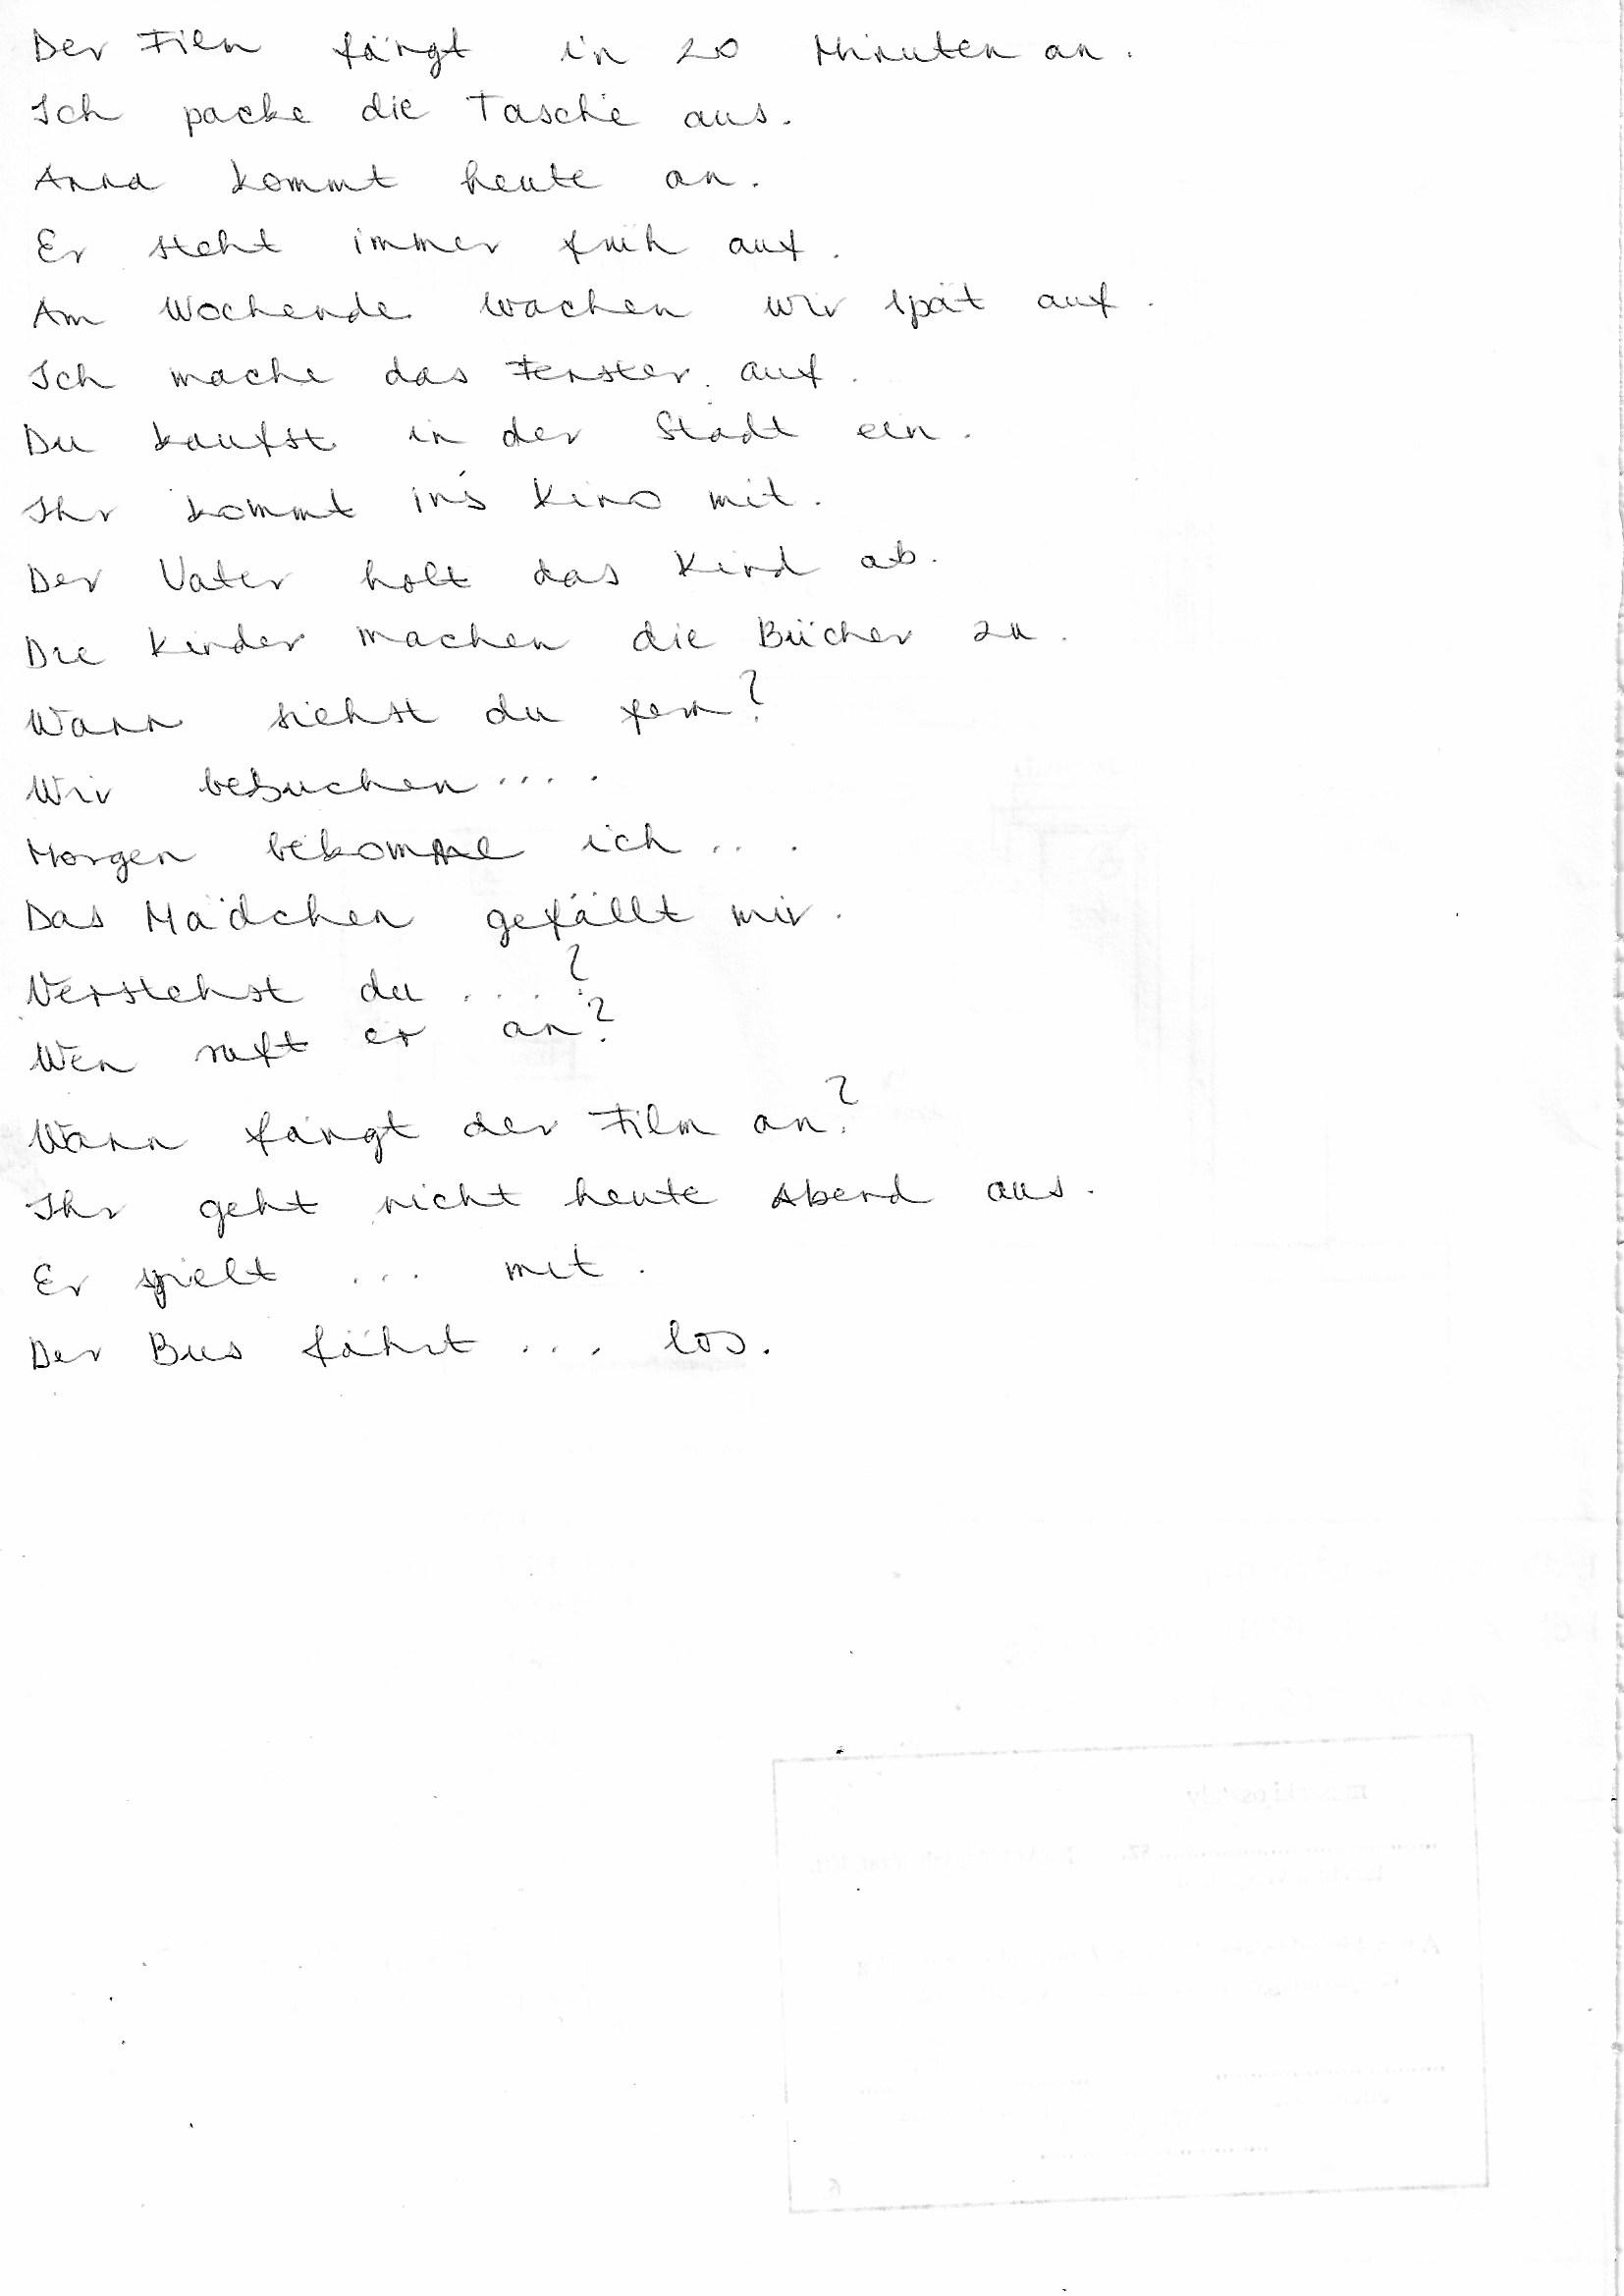 Der Film fängt in 20 Minuten an.
Ich packe die Tasche aus.
Anna kommt heute an.
Er steht immer früh auf.
Am Wochende wachen wir spät auf.
Ich mache das Fenster auf.
Du kaufst in der Stadt ein.
Ihr kommt in's Kino mit.
Der Vater holt das Kind ab.
Die Kinder machen die Bücher zu.
Wann siehst du fern?
Wir besuchen....
Morgen bekomme ich...
Das Mädchen gefällt mir.
Verstehst du ...?
Wen ruft er an?
Wann fängt der Film an?
Ihr geht nicht heute Abend aus.
Er spielt ... mit.
Der Bus fährt ... los.